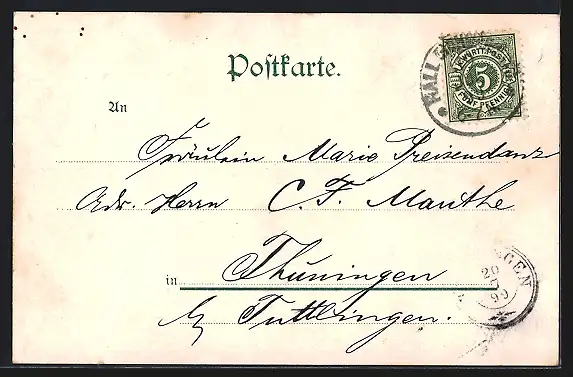 Postkarte.
K. WÜRTT. POST
5
FÜNF PFENNIG
HALL
An
Fräulein Marie Preisendanz
Adr. Herrn C. F. Mauthe
in Thuningen
b/ Tuttlingen.
20
7
99